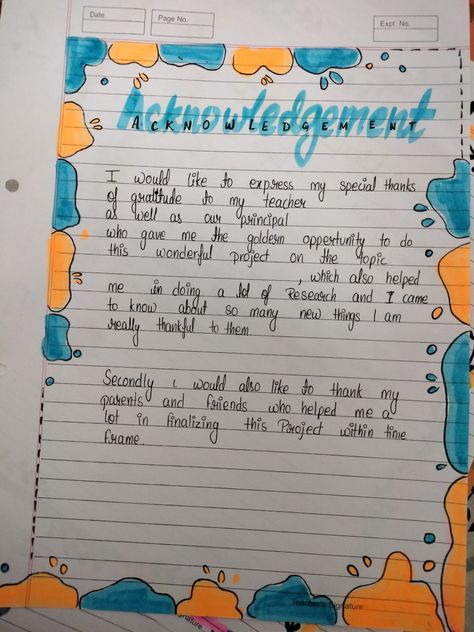 Date
Page No.
Expt. No.
Acknowledgement
ACKNOWLEDGEMENT
I would like to express my special thanks
of gratitude to my teacher
as well as our principal
who gave me the goldern opportunity to do
this wonderful project on the topic
, which also helped
me in doing a lot of Research and I came
to know about so many new things I am
really thankful to them
Secondly i would also like to thank my
parents and friends who helped me a
lot in finalizing this Project within time
frame.
Teacher's Signature: